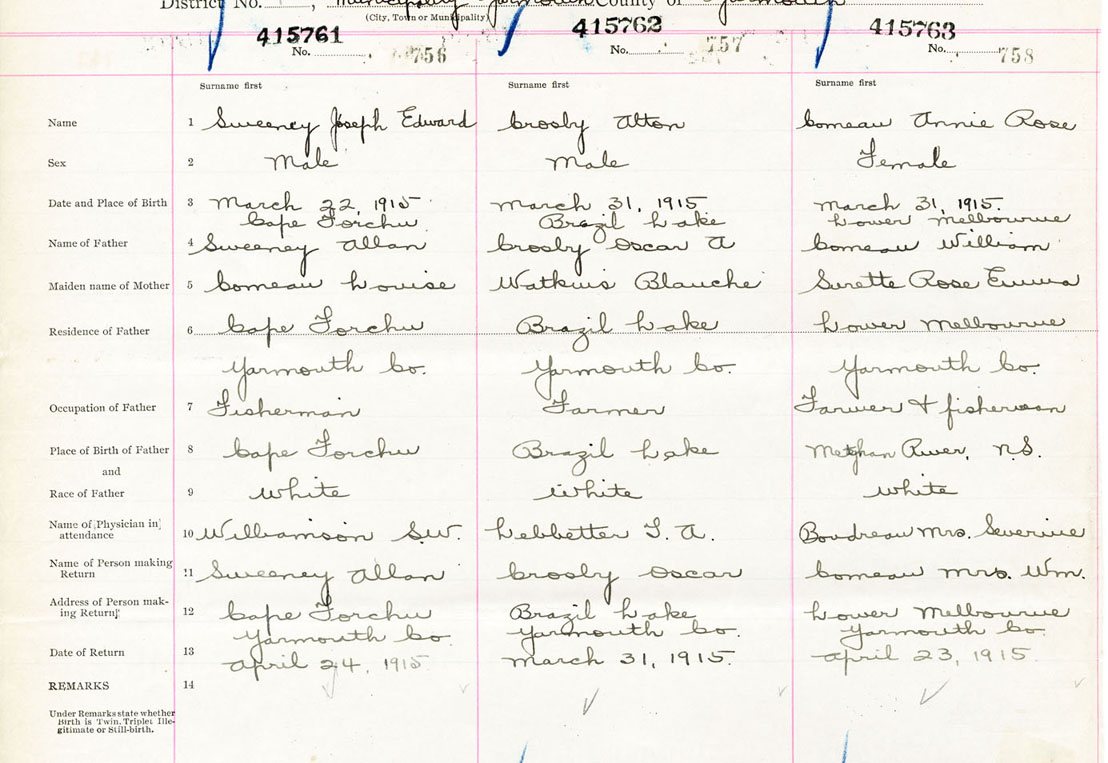 District No. , Municipality Yarmouth County of Yarmouth
(City, Town or Municipality)
415761 415762 415763
No. 756 No. 757 No. 758
Surname first Surname first Surname first
Name 1 Sweeney Joseph Edward Crosby Alton Comeau Annie Rose
Sex 2 Male Male Female
Date and Place of Birth 3 March 22, 1915 March 31, 1915 March 31, 1915.
Cape Forchu Brazil Lake Lower Melbourne
Name of Father 4 Sweeney Allan Crosby Oscar A Comeau William
Maiden name of Mother 5 Comeau Louise Watkins Blanche Surette Rose Emma
Residence of Father 6 Cape Forchu Brazil Lake Lower Melbourne
Yarmouth Co. Yarmouth Co. Yarmouth Co.
Occupation of Father 7 Fisherman Farmer Farmer & fisherman
Place of Birth of Father 8 Cape Forchu Brazil Lake Metghan River, N.S.
and
Race of Father 9 White White White
Name of Physician in 10 Williamson S.W. Lebbetter T. A. Boudreau Mrs. Severine
attendance
Name of Person making 11 Sweeney Allan Crosby Oscar Comeau Mrs. Wm.
Return
Address of Person mak- 12 Cape Forchu Brazil Lake Lower Melbourne
ing Return
Yarmouth Co Yarmouth Co. Yarmouth Co.
Date of Return 13 April 24, 1915 March 31, 1915. April 23, 1915.
REMARKS 14
Under Remarks state whether
Birth is Twin, Triplet, Ille-
gitimate or Still-birth.